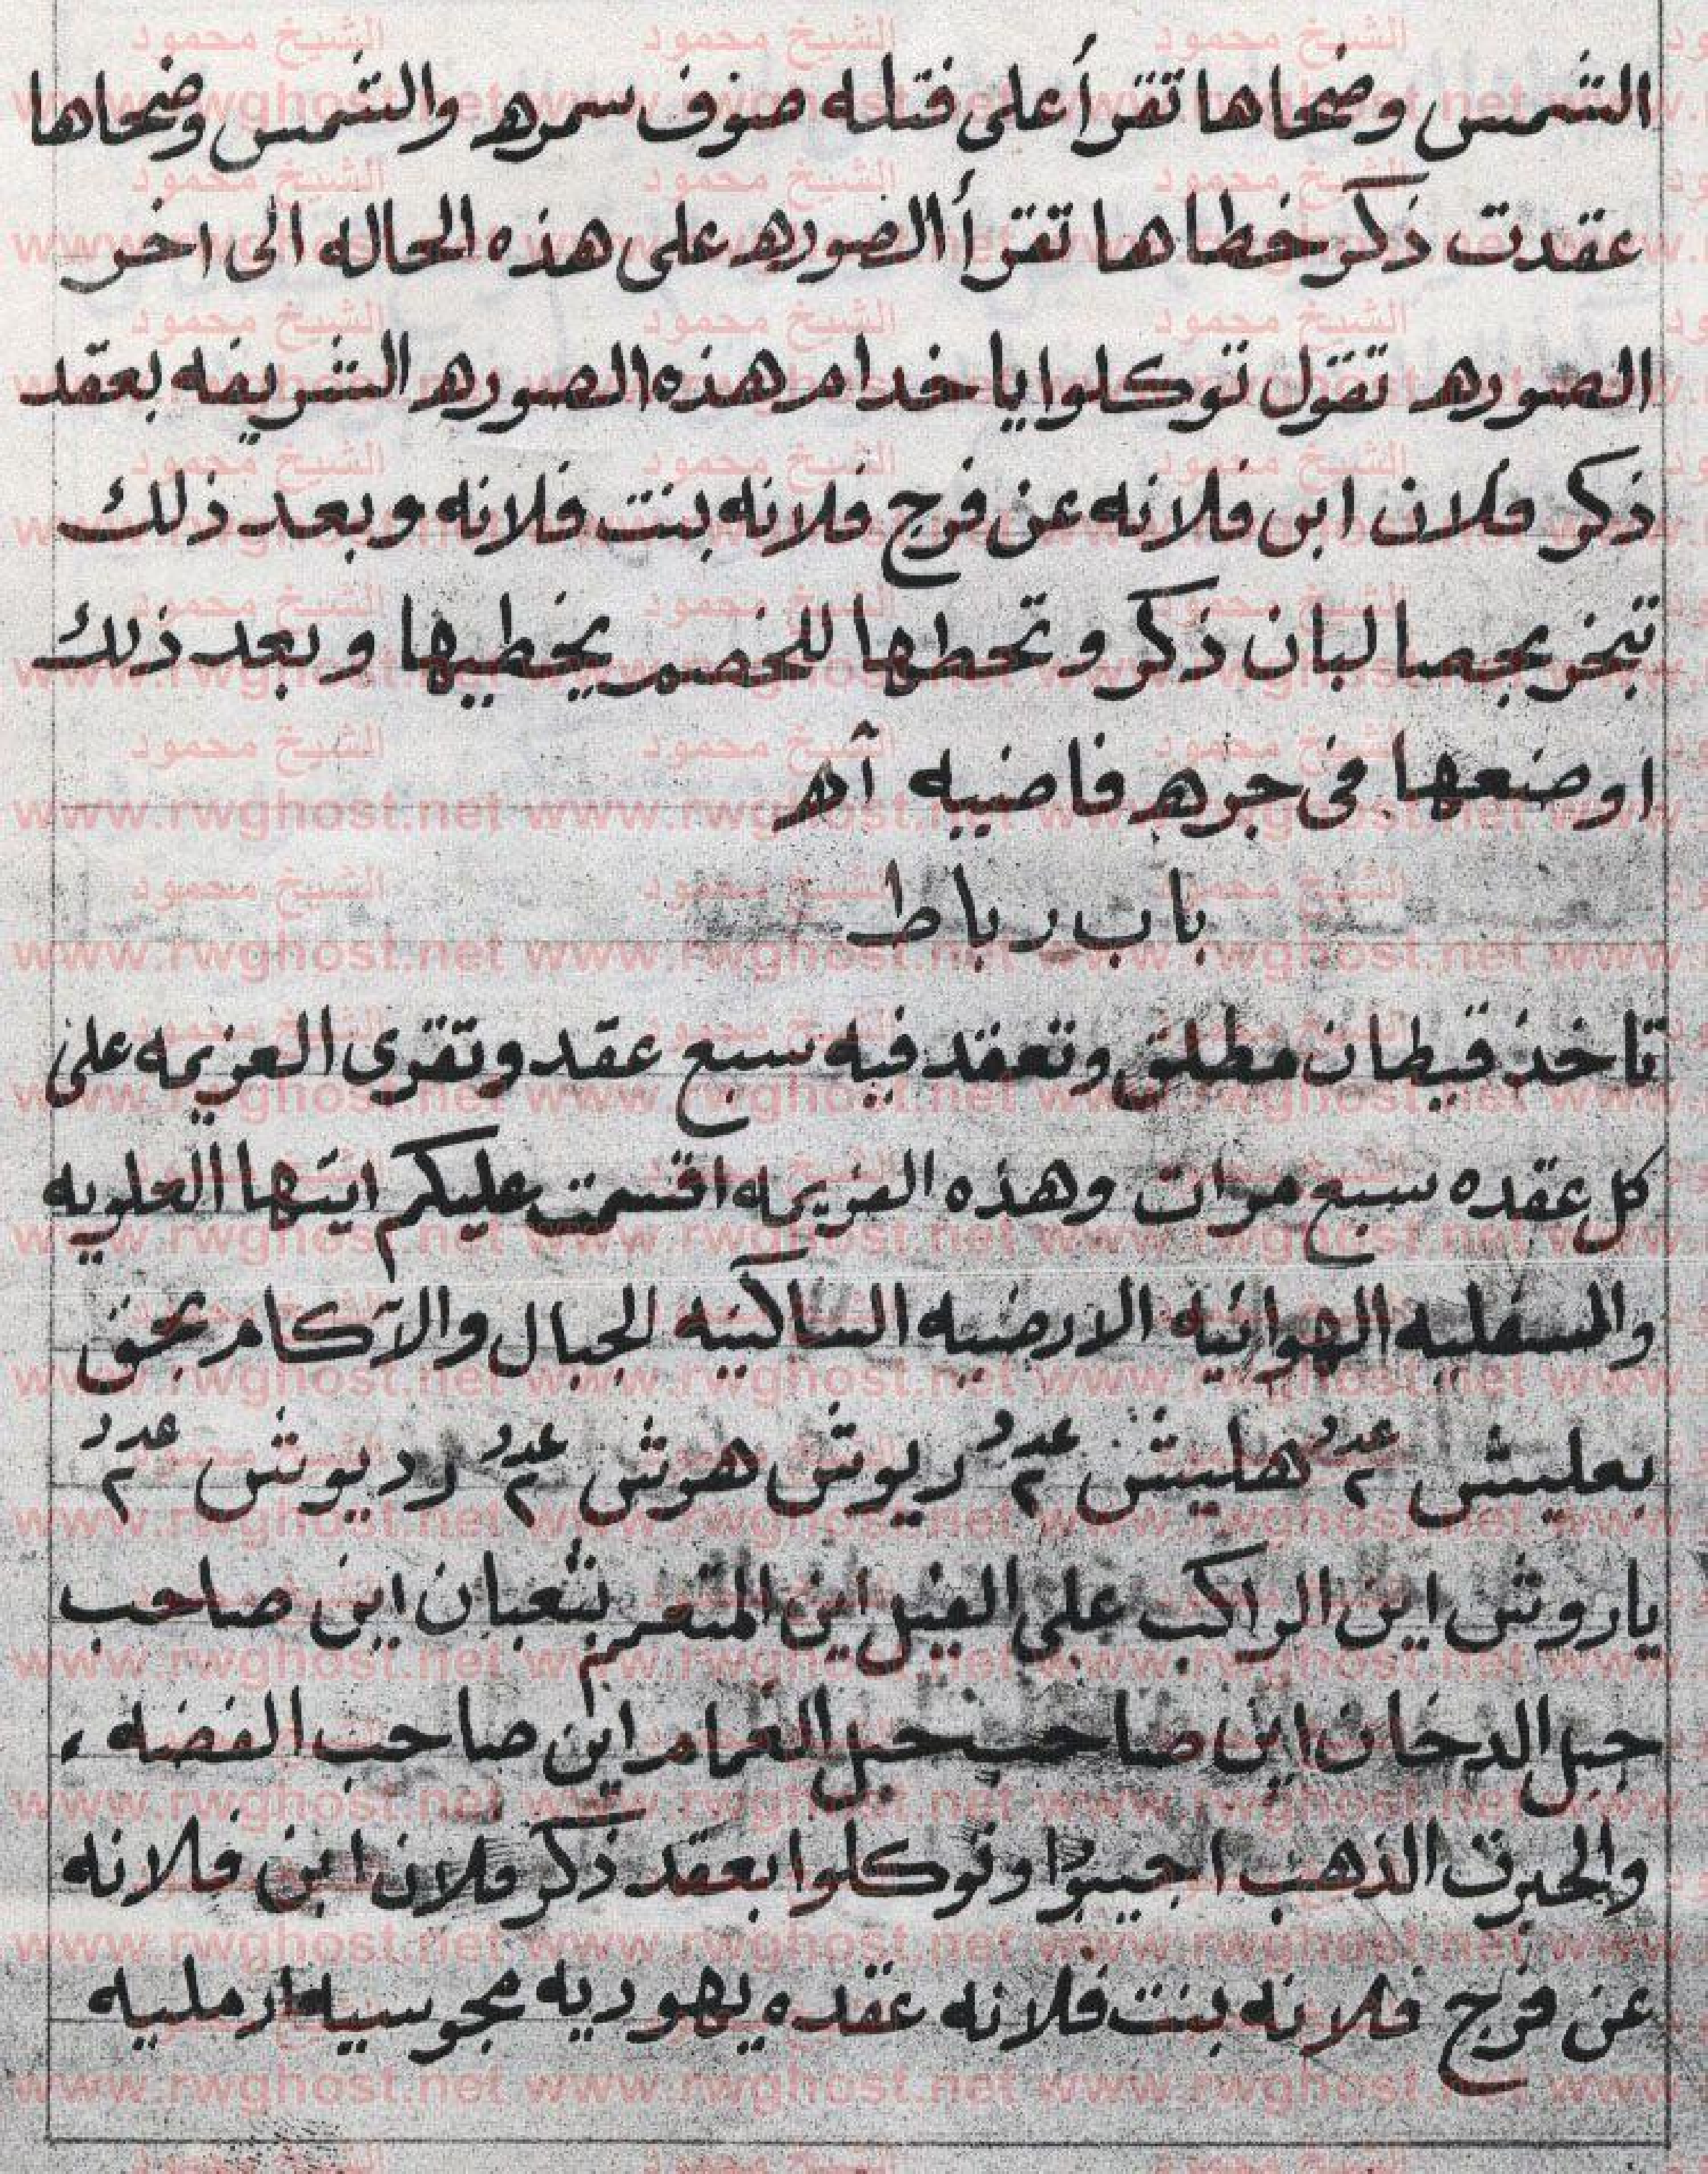 الشمس وضحاها تقرأ على فتله صوف سمره والشمس وضحاها
عقدت ذكر خطاها تقرأ الصوره على هذه الحاله الى اخر
الصوره تقول توكلوا يا خدام هذه الصوره الشريفه بعقد
ذكر فلان ابن فلانه عن فرج فلانه بنت فلانه وبعد ذلك
تبخر بحصا لبان ذكر وتحطها للخصم يخطيها وبعد ذلك
اوضعها فى جره فاضيه آه
باب رباط
تاخذ قيطان مطلق وتعقد فيه سبع عقد وتقرى العزيمه على
كل عقده سبع مرات وهذه العزيمه اقسمت عليكم ايتها العلويه
والسفليه الهوائيه الارضيه الساكنيه الجبال والآكام بحق
بعليش ٢ عدد هليش ٢ عدد ريوش هوش ٢ عدد رديوش ٢ عدد
ياروش اين الراكب على الفيل اين المتعمم بثعبان اين صاحب
جبل الدخان اين صاحب جبل الغمام اين صاحب الفضه ،
والحبرت الذهب اجيبوا وتوكلوا بعقد ذكر فلان ابن فلانه
عن فرج فلانه بنت فلانه عقده يهوديه مجوسيه ارمليه
الشيخ محمود
www.rwghost.net